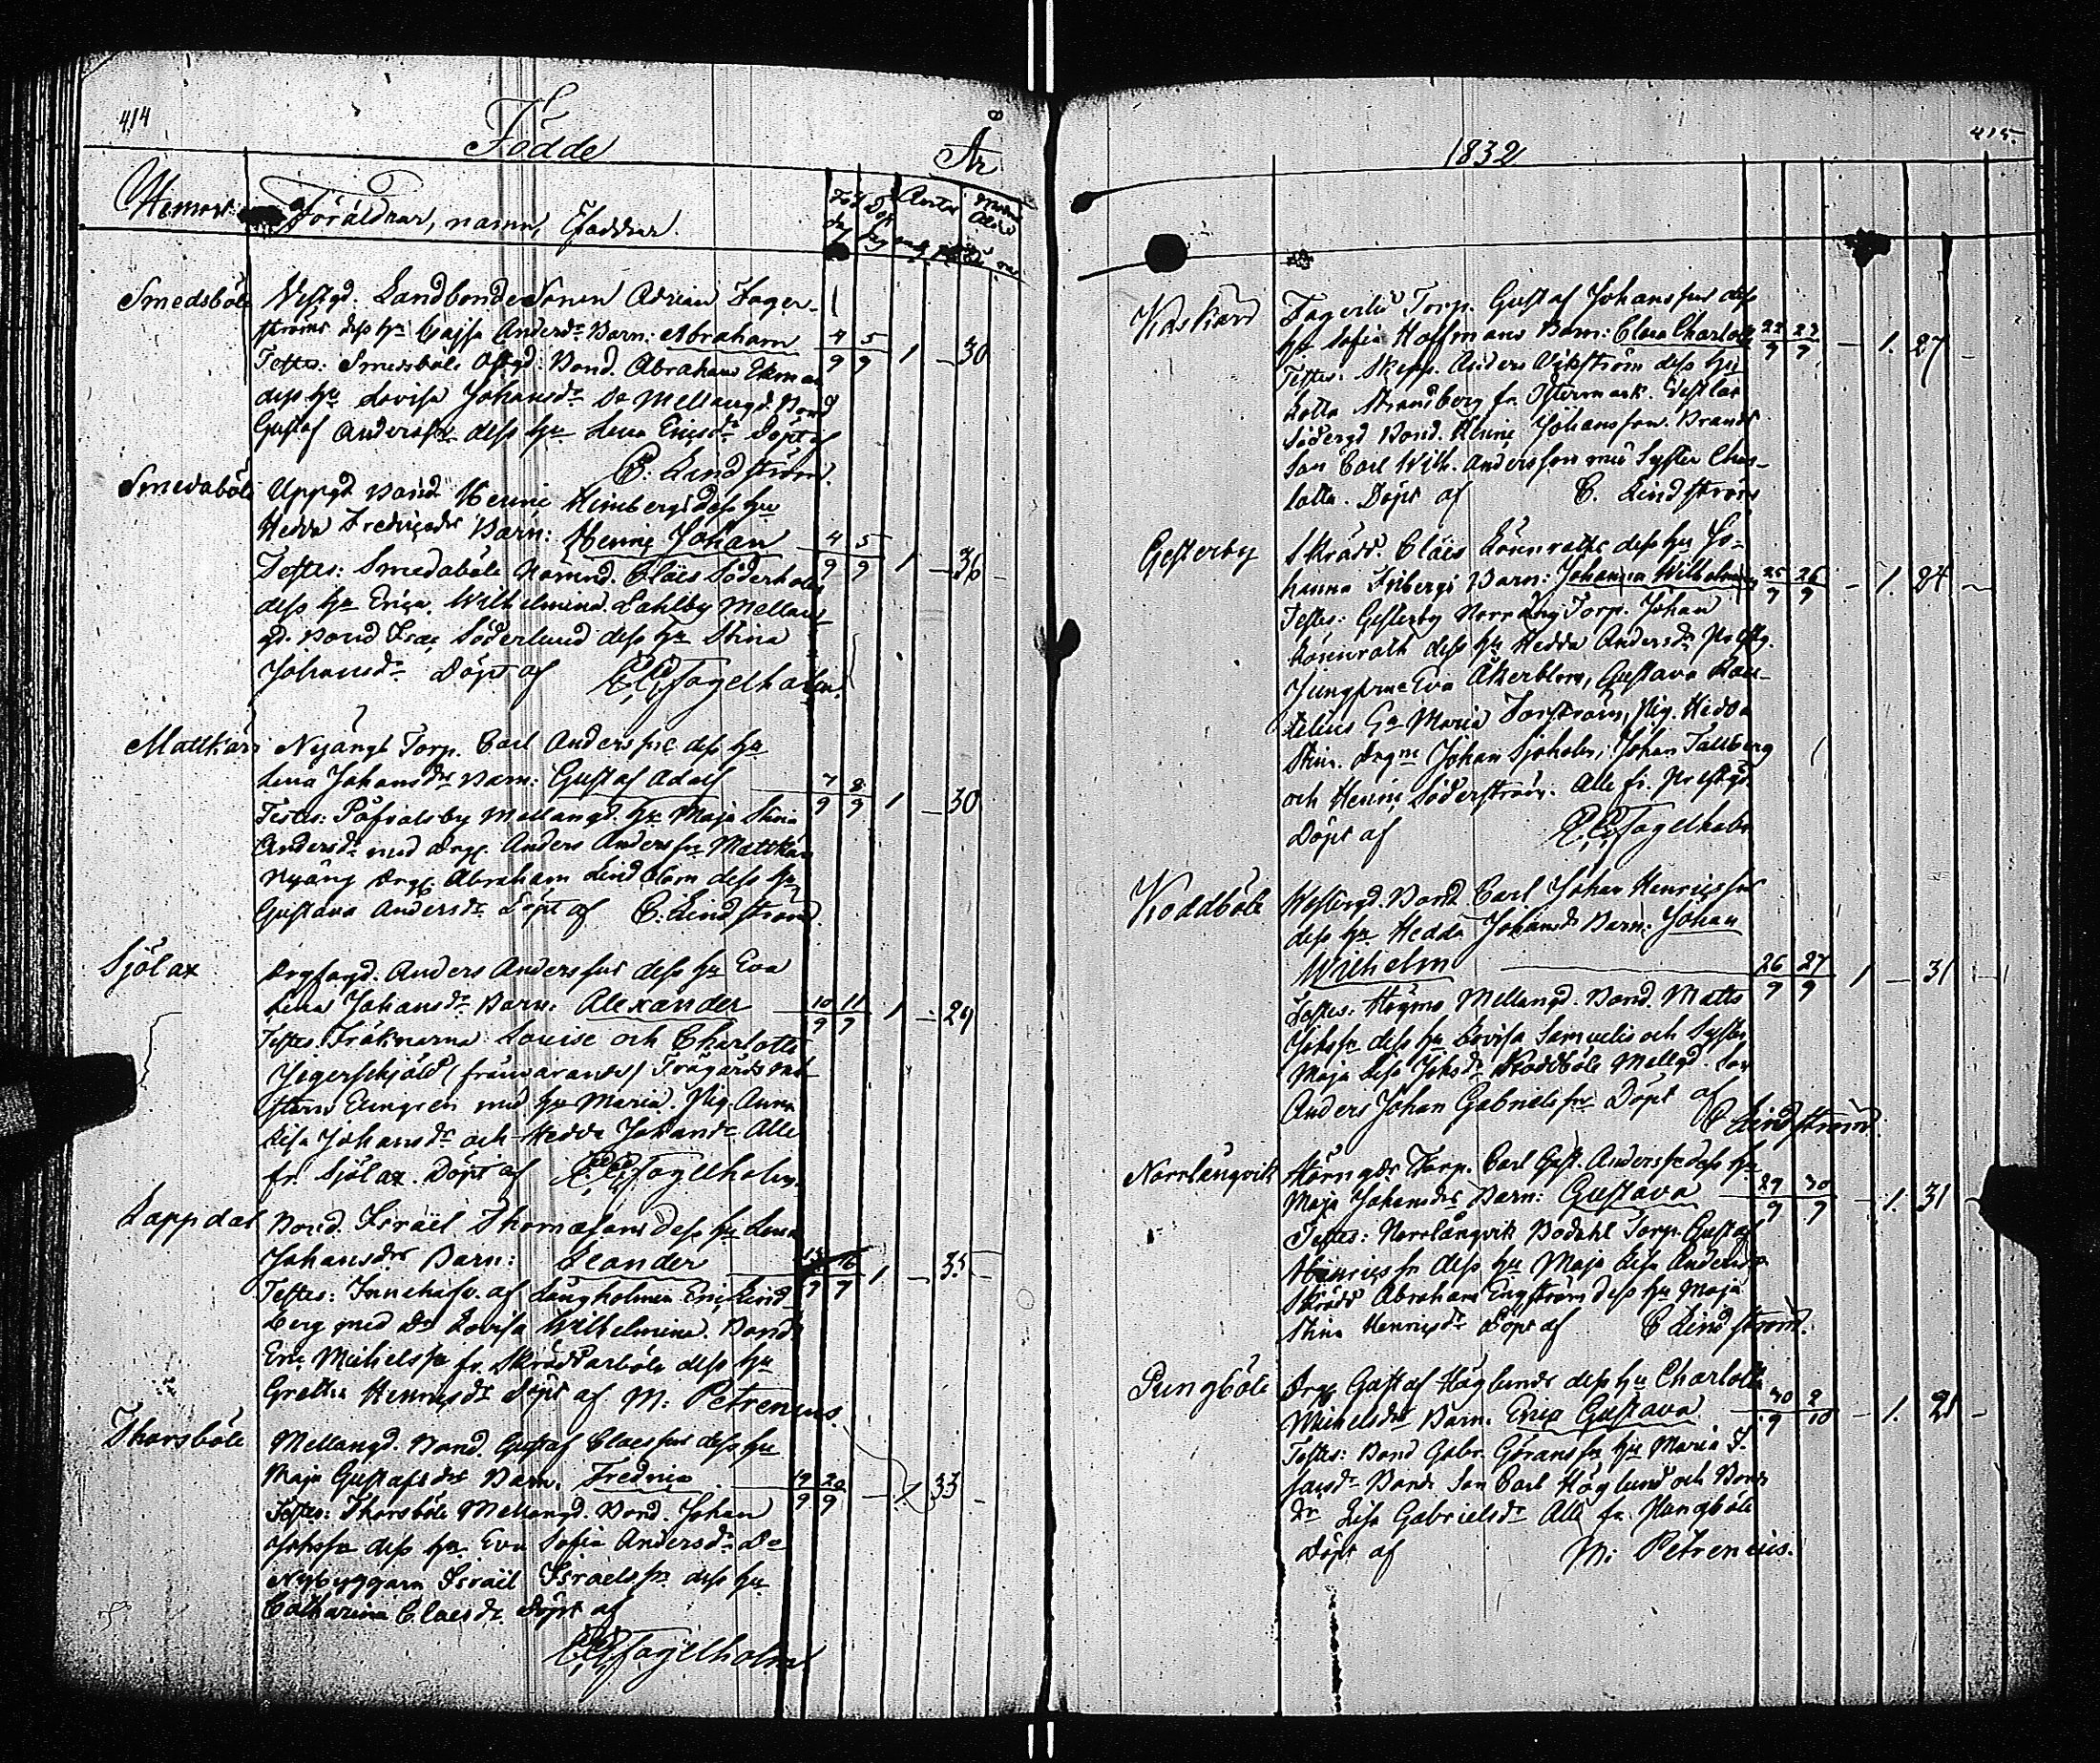 414
Födde
År
Hemort
Föräldrar, namn, Faddrar.
Smedsböle Westgd. Landbonde Sonen Adrian Fager-
ströms dess hu Cajsa Andersdr Barn: Abraham 4/9 5/9 1 – 30
Testes: Smedsböle Bond. Abraham Ekman
dess hu Lovisa Johansdr Do Mellangd. Bond
Gustaf Andersson dess hu Lena Ericsdr Döpt af
C. Lindström.
Smedsböle Uppgd Bond. Henric Himbergs dess hu
Hedda Fredricsdrs Barn: Henric Johan 4/9 5/9 1 – 36
Testes: Smedsböle Claës Söderholm
dess hu Erica Wilhelmina. Dahlby Mellan-
gd. Bond Isac Söderlund dess hu Stina
Johansdr Döpt af Fagelholm.
Mattkärr Nyängs Torp. Carl Anderssns dess hu
Lena Johansdrs Barn: Gustaf Adolf 7/9 8/9 1 – 30
Testes: Påfvalsby Mellangd. hu Maja Stina
Andersdr med drg. Anders Anderssn Mattkärr
Nyäng Drg. Abraham Lindblom dess hu
Gustava Andersdr Döpt af C. Lindström
Sjölax Anders Anderssns dess hu Eva
Lena Johansdrs Barn: Alexander 10/9 11/9 1 – 29
Testes Fröknarna Louise och Charlotta
Jägerskjöld (frånvarande) Trägårdsmä-
staren med hu Maria. Pig. Anna
Lisa Johansdr och Hedda Johansdr Alla
fr. Sjölax. Döpt af Fagelholm.
Lappdal Bond. Israël Thomassons dess hu Lena
Johansdrs Barn: Leander 15/9 16/9 1 – 35 –
Testes: Innehafv. af Långholmen Eric Lind-
berg med Dr Lovisa Wilhelmina. Bond
Eric Michelssn fr. Skräddarböle dess hu
Gretha Henricsdr Döpt af M: Petrenius.
Thorsböle Mellangd. Bond. Gustaf Claessns dess hu
Maja Gustafsdrs Barn. Fredrica 19/9 20/9 – 1 33 –
Testes: Thorsböle Mellangd. Bond. Johan
Johssn dess hu Eva Sofia Andersdr Do
Nybyggarn Israël Israelssn dess hu
Catharina Claesdr. Döpt af
Fagelholm
415.
1832
Fagerlid Torp. Gustaf Johanssns dess
hu Sofia Hoffmans Barn: Clara Charlotta 22/9 23/9 – 1. 27 –
Testes. Skepp. Anders Wikström dess hu
Lotta Strandberg fr. Östermark. Vestlax
Södergd Bond. Henric Johansson. Brands
Son Carl Wilh. Andersson med Syster Char-
lotta. Döpt af C. Lindström
Gesterby Skrädd. Claës Rönnroths dess hu Jo-
hanna Fribergs Barn: Johanna Wilhelmina 25/9 26/9 – 1. 24
Testes: Gesterby Torp. Johan
Rönnroth dess hu Hedda Andersdr Prestg.
Jungfrue Eva Åkerblom, Gustava
Maria Forsström, Pig. Hedda
Johan Sjöholm, Johan Tallberg
och Henric Söderström. Alla fr. Prestgd
Döpt af Fagelholm
Koddböle Westergd. Bond. Carl Johan Henricssns
dess hu Hedda Johansdrs Barn: Johan
Wilhelm 26/9 27/9 1 – 31 –
Testes: Högmo Mellangd. Bond. Matts
Johssn dess hu Lovisa Samuelsdr och Syster
Maja Lisa Johsdr Koddböle Mellgd. Son
Anders Johan Gabrielssn Döpt af
C Lindström.
Norrlångvik Torp. Carl Gust. Anderssns dess hu
Maja Johansdrs Barn: Gustava 29/9 30/9 – 1. 31
Testes: Norrlångvik Bodahl Torp. Gustaf
Henricssn dess hu Maja Lisa Andersdr
Skrädd Abraham Engström dess hu Maja
Stina Henricsdr Döpt af C Lindström.
Pungböle Drg. Gustaf Höglunds dess hu Charlotta
Michelsdrs Barn. Erica Gustava 30/9 2/10 – 1. 21 –
Testes: Bond Gabr. Göransson hu Maria I-
sacsdr Bonde Son Carl Höglund och Bonde
Dr Lisa Gabrielsdr Alla fr. Pungböle
Döpt af M: Petrenius.